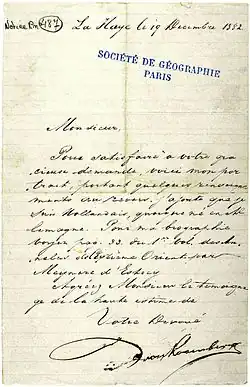 Notice No 487
La Haye le 19 Décembre 1882
SOCIÉTÉ DE GÉOGRAPHIE
PARIS
Monsieur,
Pour satisfaire à votre gra
cieuse demande, voici mon por
trait, portant quelques renseigne
ments au revers. J'ajoute que je
suis Hollandais, quoique né en Al
lemagne. Pour ma biographie
voyez pag. 33 du 1er Vol. des An
nales de l'Extrême Orient par
Meyners d'Estrey
Agréez Monsieur le témoigna
ge de la haute estime de
Votre Dévoué
von Rosenberg